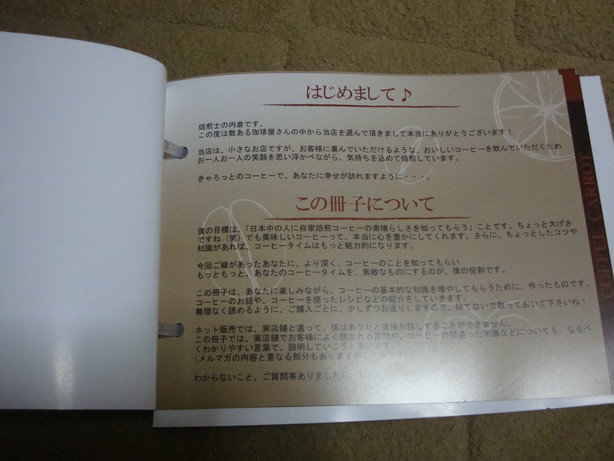 はじめまして♪
焙煎士の内倉です。
この度は数ある珈琲屋さんの中から当店を選んで頂きまして本当にありがとうございます！
当店は、小さなお店ですが、お客様に喜んでいただけるような、おいしいコーヒーを飲んでいただくため
お一人お一人の笑顔を思い浮かべながら、気持ちを込めて焙煎しています。
きゃろっとのコーヒーで、あなたに幸せが訪れますように・・・。
この冊子について
僕の目標は、「日本中の人に自家焙煎コーヒーの素晴らしさを知ってもらう」ことです。ちょっと大げさ
ですね（笑）でも美味しいコーヒーって、本当に心を豊かにしてくれます。さらに、ちょっとしたコツや
知識があれば、コーヒータイムはもっと魅力的になります。
今回ご縁があったあなたに、より深く、コーヒーのことを知ってもらい
もっともっと、あなたのコーヒータイムを、素敵なものにするのが、僕の役割です。
この冊子は、あなたに楽しみながら、コーヒーの基本的な知識を増やしてもらうために、作ったものです。
コーヒーのお話や、コーヒーを使ったレシピなどの紹介をしていきます。
無理なく読めるように、ご購入ごとに、少しずつお送りしますので、捨てないで取っておいて下さいね！
ネット販売では、実店舗と違って、僕はあなたと直接お話しすることができません。
この冊子では、実店舗でお客様によく聞かれる質問や、コーヒーの間違った常識などについても、なるべ
くわかりやすい言葉で、説明していこうと思います。
（メルマガの内容と重なる部分もありますが
わからないこと、ご質問等ありましたら、
COFFEE CARROT